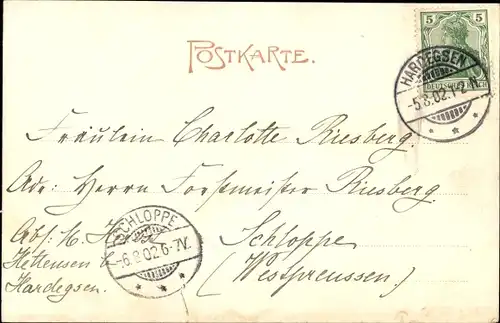 POSTKARTE.
5 5
DEUTSCHES REICH
HARDEGSEN
-5.8.02.1-2 N.
Fräulein Charlotte Riesberg.
Adr: Herrn Forstmeister Riesberg
SCHLOPPE
-6.8.02.6-7V.
Schloppe
Abs: H.
Hettensen
(Westpreussen)
Hardegsen.